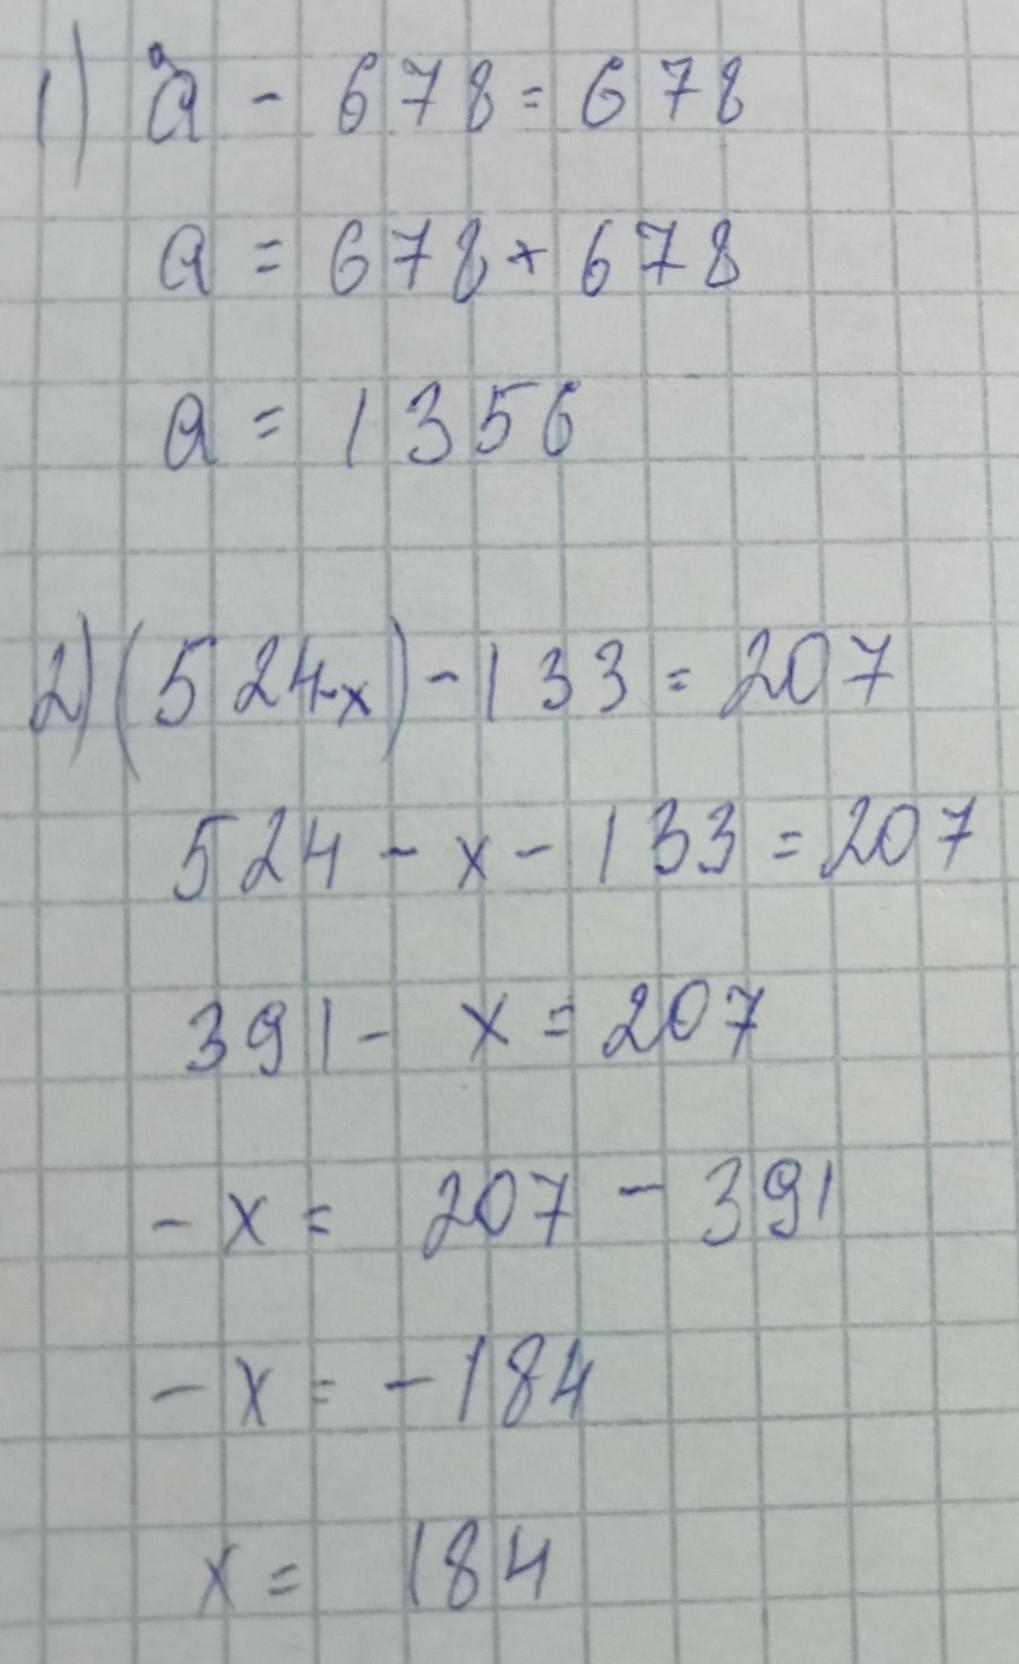 1) a - 678 = 678
a = 678 + 678
a = 1356
2) (524-x) - 133 = 207
524 - x - 133 = 207
391 - x = 207
- x = 207 - 391
- x = - 184
x = 184